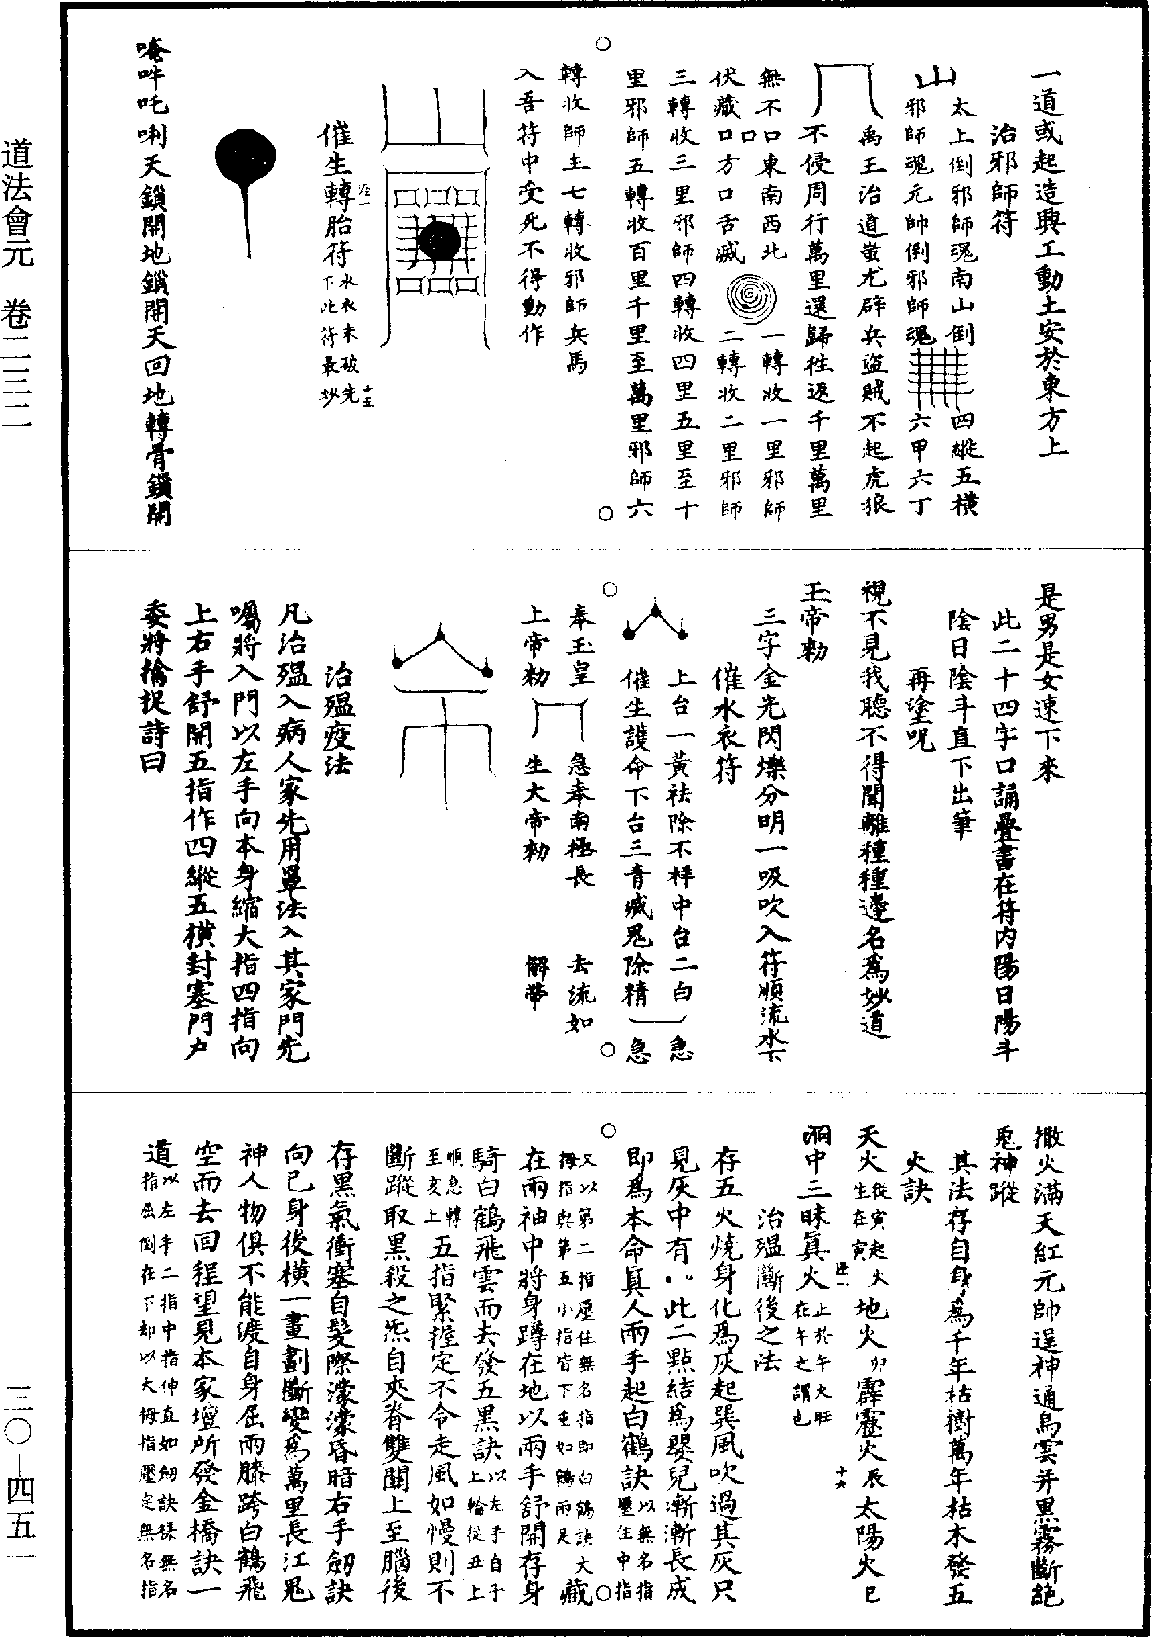 道法會元　卷二三二
三〇—四五一
一道或起造興工動土安於東方上
治邪師符
太上倒邪師魂南山倒　四縱五橫
邪師魂元帥倒邪師魂　六甲六丁
禹王治道蚩尤辟兵盜賊不起虎狼
不侵周行萬里還歸往返千里萬里
無不口東南西北　一轉收一里邪師
伏藏口方口舌滅　二轉收二里邪師
三轉收三里邪師四轉收四里五里至十
里邪師五轉收百里千里至萬里邪師六
轉收師主七轉收邪師兵馬
入吾符中受死不得動作
催生轉胎符水衣未破先下此符最妙
十五
唵吽吒唎天鎖開地鎖開天回地轉骨鎖開
是男是女速下來
此二十四字口誦疊書在符內陽日陽斗
陰日陰斗直下出筆
再塗呪
視不見我聽不得聞離種種邊名為妙道
玉帝勑
三字金光閃爍分明一吸吹入符順流水下
催水衣符
上台一黃祛除不祥中台二白　急
催生護命下台三青滅鬼除精　急
奉玉皇　急奉南極長　去流如
上帝勑　生大帝勑　解帶
治瘟疫法
凡治瘟入病人家先用罡法入其家門先
囑將入門以左手向本身縮大指四指向
上右手舒開五指作四縱五橫封塞門戶
委將擒捉詩曰
撒火滿天紅元帥逞神通烏雲并黑霧斷絕
鬼神蹤
其法存自身為千年枯樹萬年枯木發五
火訣
天火從寅起火生在寅地火卯霹靂火辰太陽火巳
洞中三昧真火上於午火旺在午之謂也
十六
治瘟斷後之法
存五火燒身化為灰起巽風吹過其灰只
見灰中有八此二點結為嬰兒漸漸長成
即為本命真人兩手起白鶴訣以無名指壓住中指
又以第二指壓住無名指即白鶴訣大拇指與第五小指皆下垂如鶴兩足藏
在兩袖中將身蹲在地以兩手舒開存身
騎白鶴飛雲而去發五黑訣以左手自子上輪從丑上
順急轉至亥上五指緊握定不令走風如慢則不
斷蹤取黑殺之炁自夾脊雙關上至腦後
存黑氣衝塞自髮際濛濛昏暗右手劒訣
向己身後橫一畫劃斷變為萬里長江鬼
神人物俱不能渡自身屈兩膝跨白鶴飛
空而去回程望見本家壇所發金橋訣一
道以左手二指中指伸直如劒訣樣無名指屈倒在下却以大拇指壓定無名指